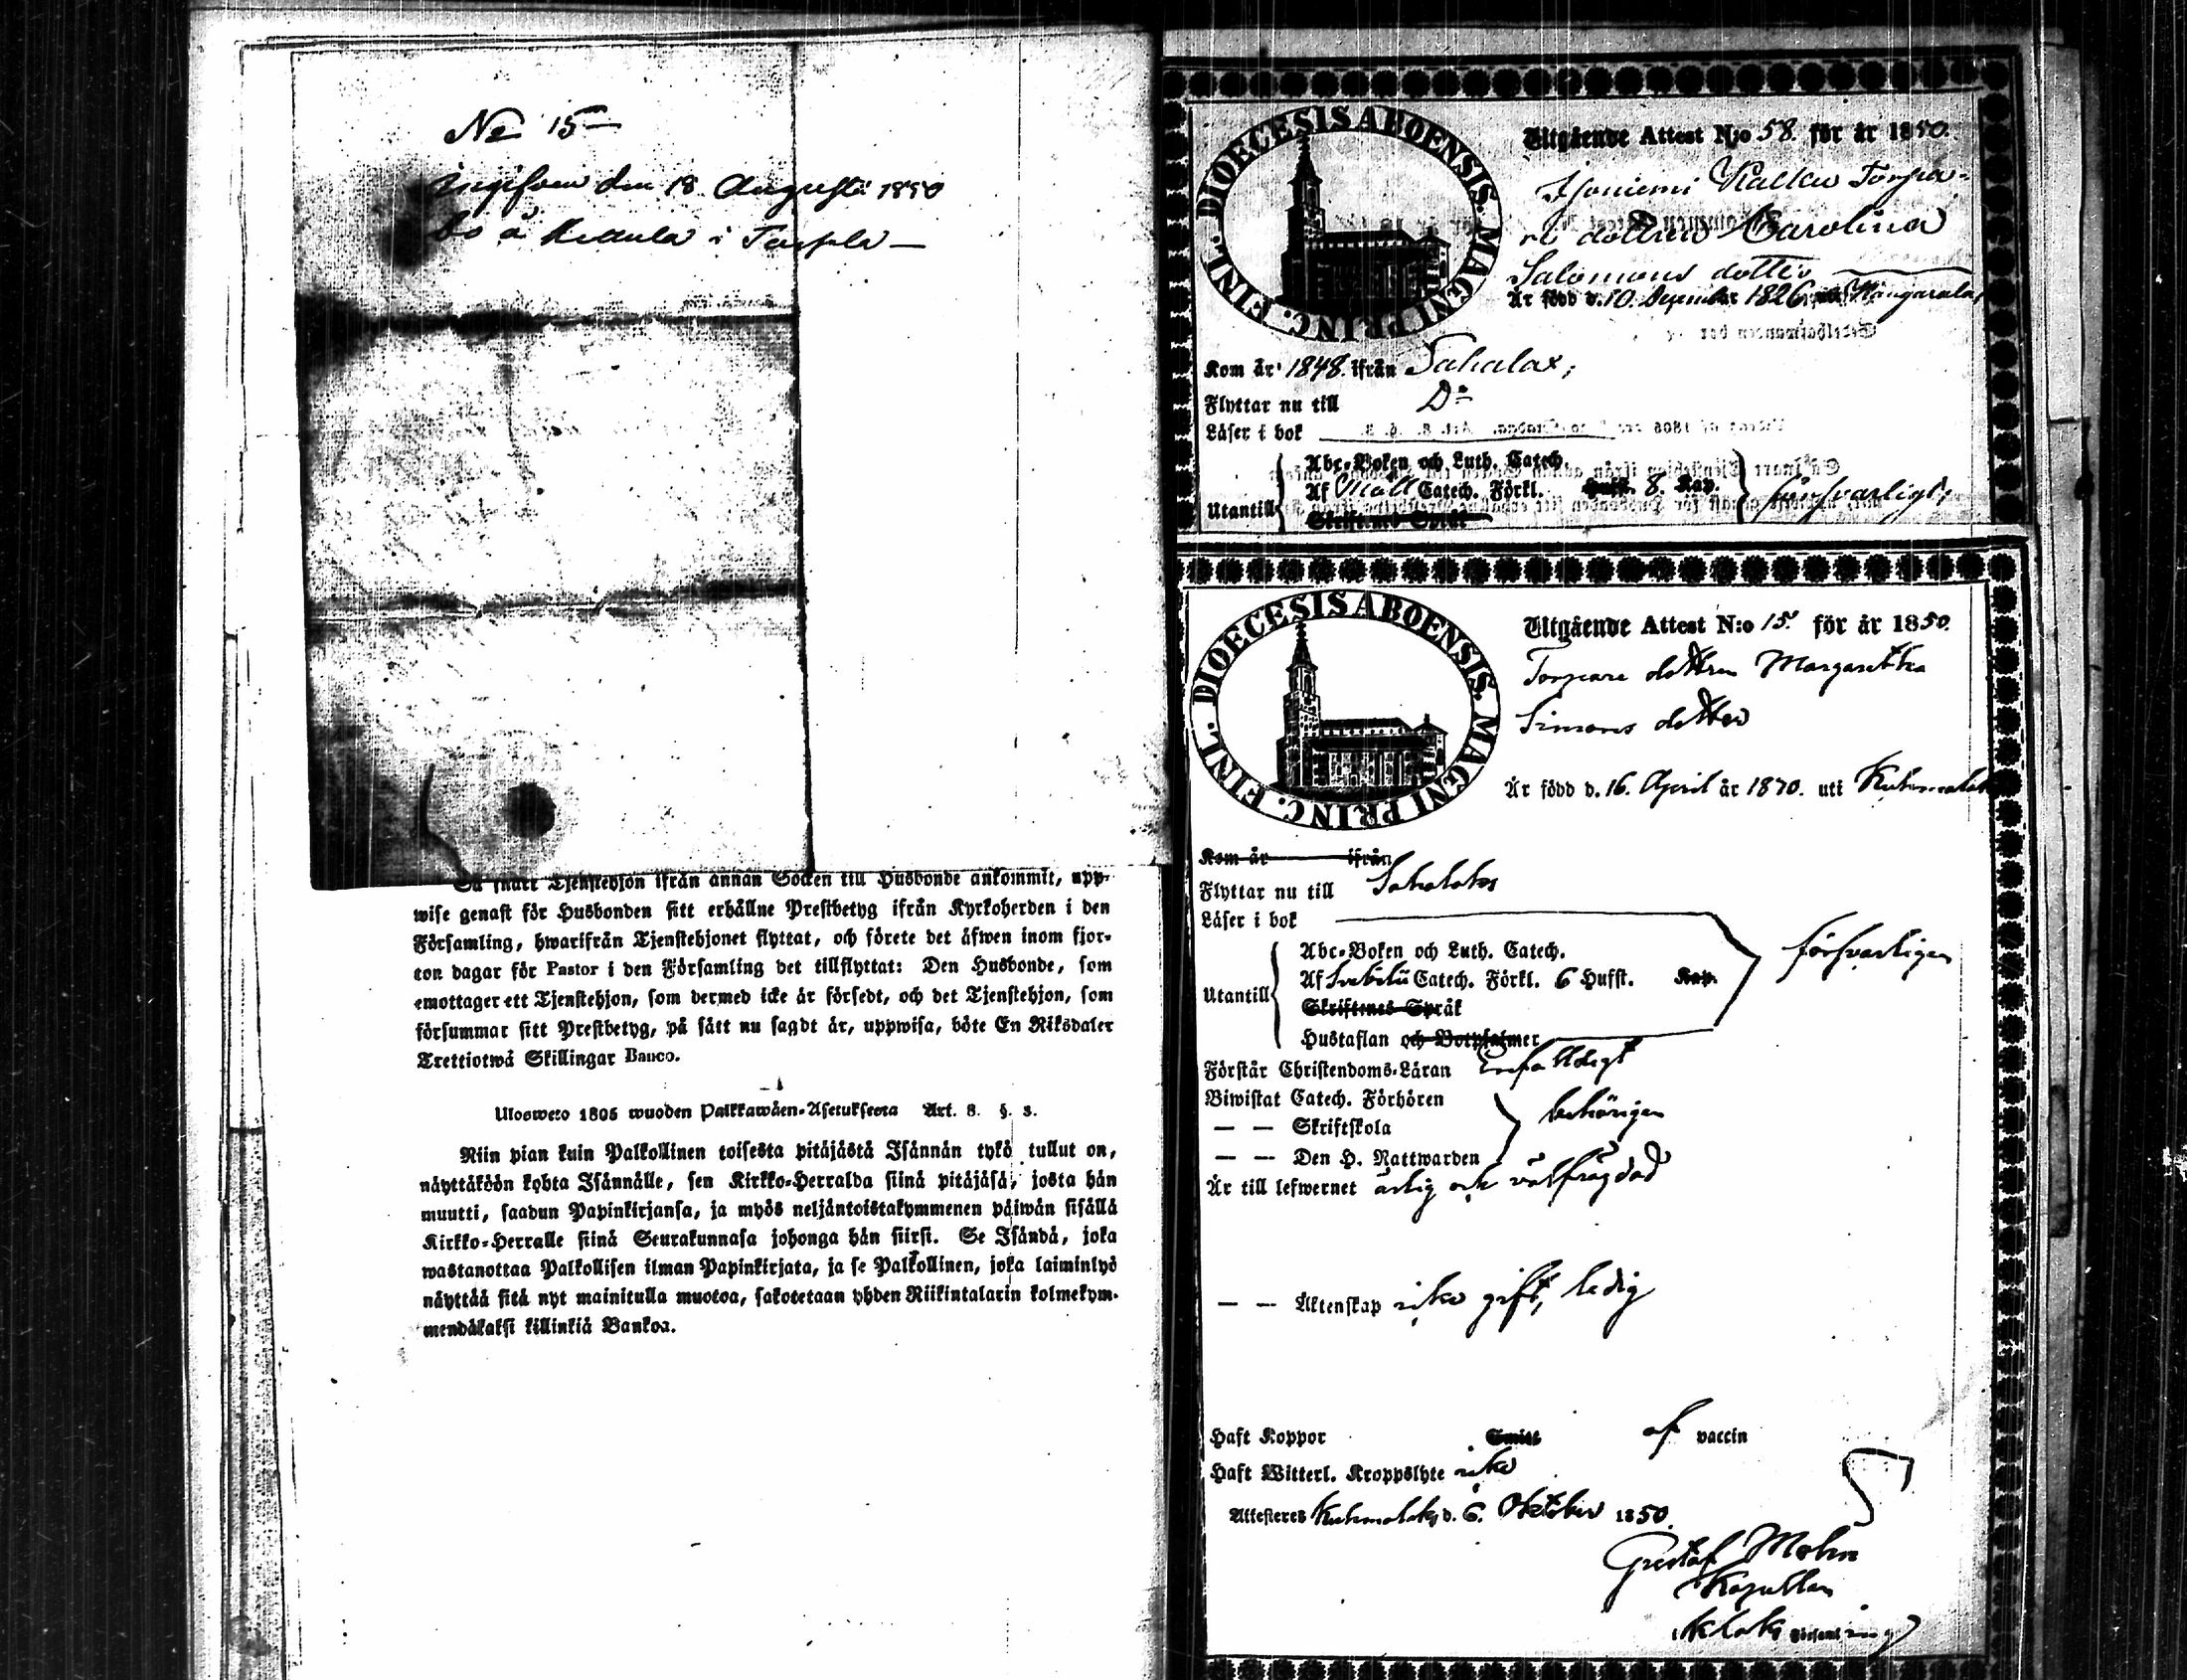 No 15
Ingifven den 18 Augusti 1850
bo å Kekkula i Torpila
Så snart Tjenstehjon ifrån annan Socken till Husbonde ankommit, upp-
wise genast för Husbonden sitt erhållne Prestbetyg ifrån Kyrkoherden i den
Församling, hwarifrån Tjenstehjonet flyttat, och förete det äfwen inom fjor-
ton dagar för Pastor i den Församling det tillflyttat: Den Husbonde, som
emottager ett Tjenstehjon, som dermed icke är försedt, och det Tjenstehjon, som
försummar sitt Prestbetyg, på sätt nu sagdt är, uppwisa, böte En Riksdaler
Trettiotwå Skillingar Banco.
Uloswето 1805 wuoden Palkkawäen-Asetuksesta Art. 8. §. 3.
Niin pian kuin Palkollinen toisesta pitäjästä Isännän tykö tullut on,
näyttäköön kohta Isännälle, sen Kirkko-Herralda siinä pitäjäsä, josta hän
muutti, saadun Papinkirjansa, ja myös neljäntoistakymmenen päiwän sisällä
Kirkko-Herralle siinä Seurakunnasa johonga hän siirsi. Se Isändä, joka
wastanottaa Palkollisen ilman Papinkirjata, ja se Palkollinen, joka laiminlyö
näyttää sitä nyt mainitulla muotoa, sakotetaan yhden Riikintalarin kolmekym-
mendäkaksi killinkiä Bankoa.
DIOECESIS ABOENSIS. MAGNI PRINC. FINL.
Utgående Attest N:o 58. för år 1850.
Torpa-
re dottren Carolina
Salomons dotter
Är född d. 10. December 1826 Kangasala,
Kom år 1848. ifrån Sahalax,
Flyttar nu till Do
Läser i bok
Abc-Boken och Luth. Catech.
Utantill Af Möll Catech. Förkl. Husst. 8 Kap. försvarligt,
Skriftenes Språk
DIOECESIS ABOENSIS. MAGNI PRINC. FINL.
Utgående Attest N:o 15. för år 1850.
Torpare dottren Margaretha
Simons dotter
Är född d. 16. April år 1830. uti Kuhmalaks
Kom år ifrån
Flyttar nu till Sahalaks
Läser i bok
Abc-Boken och Luth. Catech.
Utantill Af Svebilii Catech. Förkl. 6 Husst. Kap. försvarligen
Skriftenes Språk
Hustaflan och Botpsalmer
Förstår Christendoms-Läran Enfaldigt
Biwistat Catech. Förhören
— — Skriftskola behörigen
— — Den H. Nattwarden
Är till lefwernet ärlig och välfrägdad
— — Äktenskap icke gift, ledig
Haft Koppor Smitt af vaccin
Haft Witterl. Kroppslyte icke
Attesteres Kuhmalaks d. 6. Oktober 1850.
Gustaf Molin
Kapellan